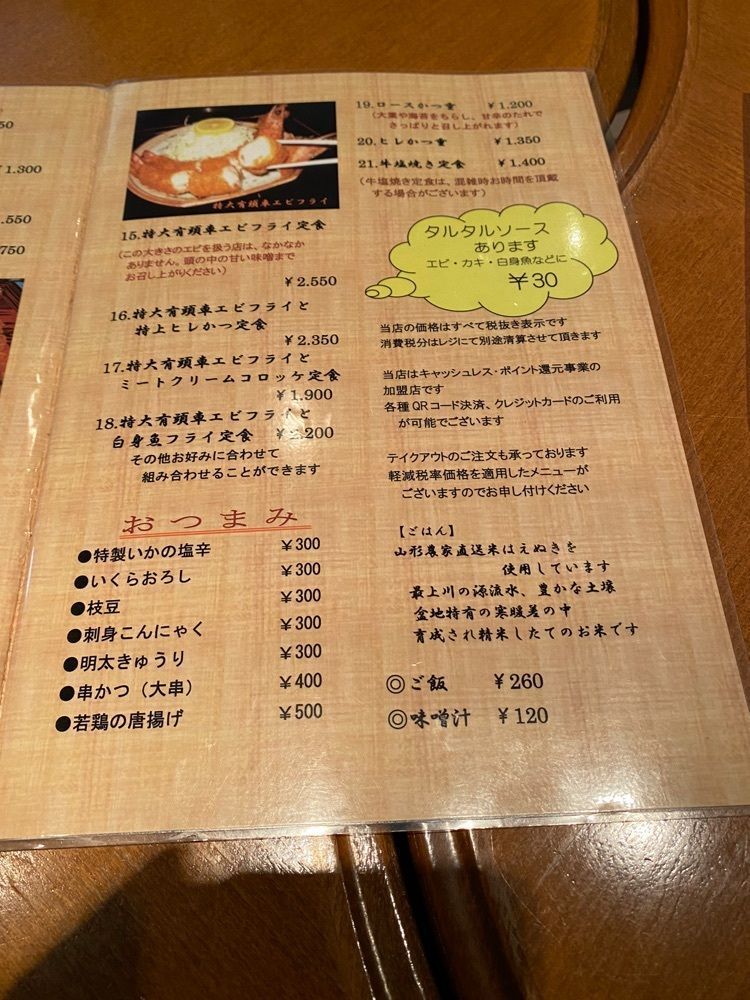 50
¥1.300
.550
750
特大有頭車エビフライ
15.特大有頭車エビフライ定食
(この大きさのエビを扱う店は、なかなか
ありません。頭の中の甘い味噌まで
お召し上がりください)
¥2.550
16.特大有頭車エビフライと
特上ヒレかつ定食
¥2.350
17.特大有頭車エビフライと
ミートクリームコロッケ定食
¥1.900
18.特大有頭車エビフライと
白身魚フライ定食 ¥2.200
その他お好みに合わせて
組み合わせることができます
おつまみ
●特製いかの塩辛 ¥300
●いくらおろし ¥300
●枝豆 ¥300
●刺身こんにゃく ¥300
●明太きゅうり ¥300
●串かつ（大串） ¥400
●若鶏の唐揚げ ¥500
19.ロースかつ重 ¥1.200
(大葉や海苔をちらし、甘辛のたれで
さっぱりと召し上がれます)
20.ヒレかつ重 ¥1.350
21.牛塩焼き定食 ¥1.400
(牛塩焼き定食は、混雑時お時間を頂戴
する場合がございます)
タルタルソース
あります
エビ・カキ・白身魚などに
¥30
当店の価格はすべて税抜き表示です
消費税分はレジにて別途清算させて頂きます
当店はキャッシュレス・ポイント還元事業の
加盟店です
各種QRコード決済、クレジットカードのご利用
が可能でございます
テイクアウトのご注文も承っております
軽減税率価格を適用したメニューが
ございますのでお申し付けください
【ごはん】
山形農家直送米はえぬきを
使用しています
最上川の源流水、豊かな土壌
盆地特有の寒暖差の中
育成され精米したてのお米です
◎ご飯 ¥260
◎味噌汁 ¥120